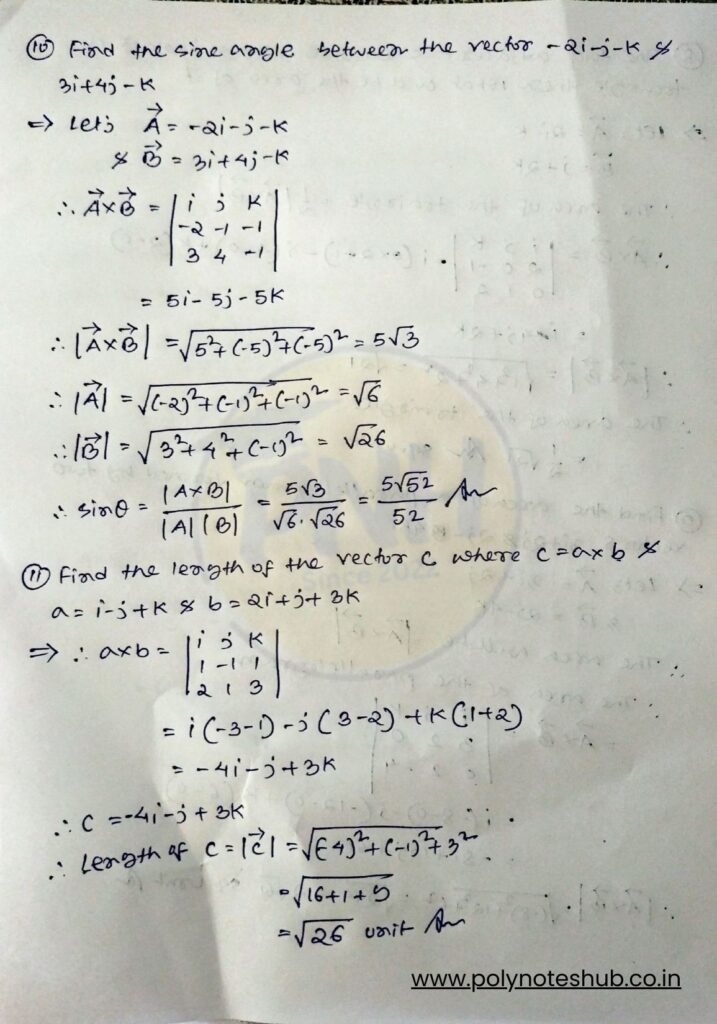 ⑩ Find the sine angle between the vector -2i-j-k &
3i+4j-k
⇒ Let's A⃗ = -2i-j-k
& B⃗ = 3i+4j-k
∴ A⃗×B⃗ = | i j k |
| -2 -1 -1 |
| 3 4 -1 |
= 5i-5j-5k
∴ |A⃗×B⃗| = √5²+(-5)²+(-5)² = 5√3
∴ |A⃗| = √(-2)²+(-1)²+(-1)² = √6
∴ |B⃗| = √3²+4²+(-1)² = √26
∴ sinθ = |A×B| / |A||B| = 5√3 / √6·√26 = 5√52 / 52 An
⑪ Find the length of the vector c where c=a×b &
a= i-j+k & b=2i+j+3k
⇒ ∴ a×b = | i j k |
| 1 -1 1 |
| 2 1 3 |
= i(-3-1)-j(3-2)+k(1+2)
= -4i-j+3k
∴ c = -4i-j+3k
∴ Length of c = |c⃗| = √(-4)²+(-1)²+3²
= √16+1+9
= √26 unit An
PNH
Since 2022
www.polynoteshub.co.in